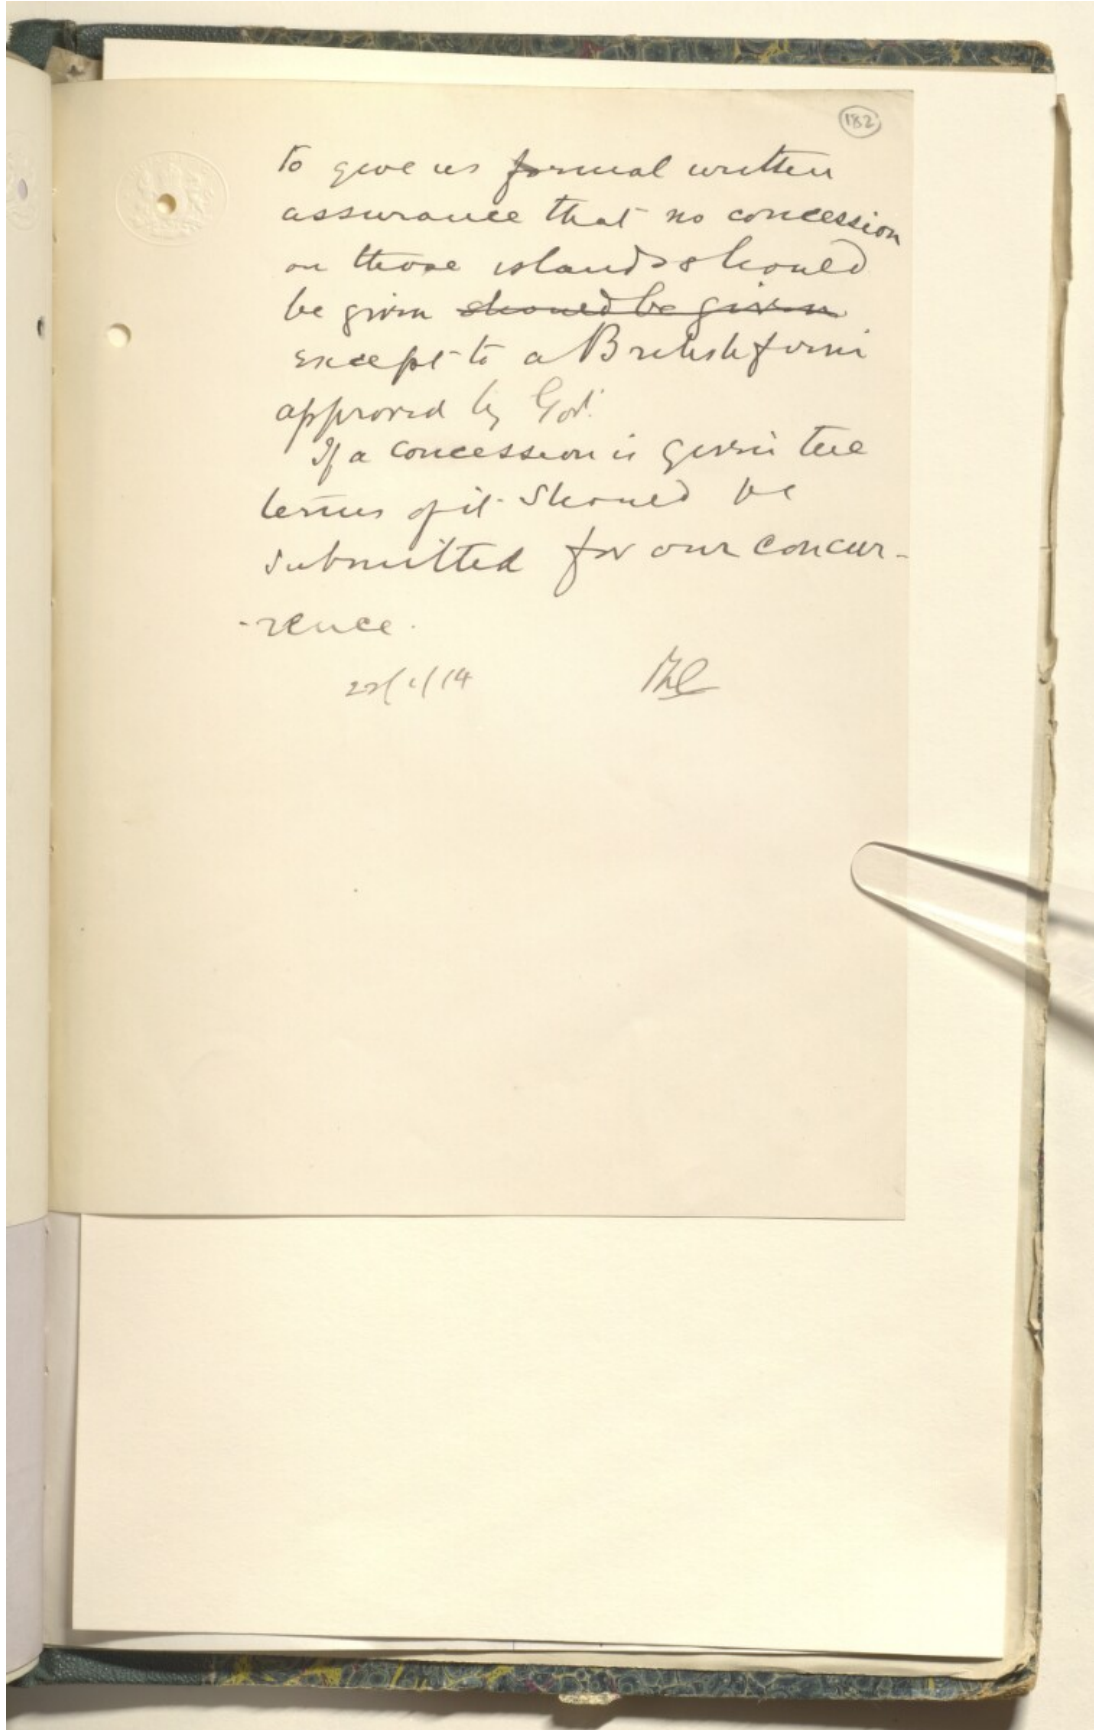 182
to give us formal written
assurance that no concession
on those islands should
be given should be given
except to a British firm
approved by Govt.
If a concession is given the
terms of it should be
submitted for our concur-
-rence.
/14